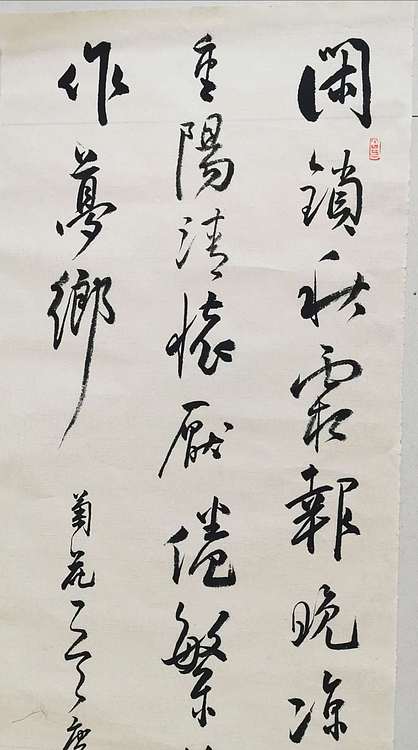 閑鎖秋霜報晚涼
重陽清懷厭倦繁
作夢鄉
菊花